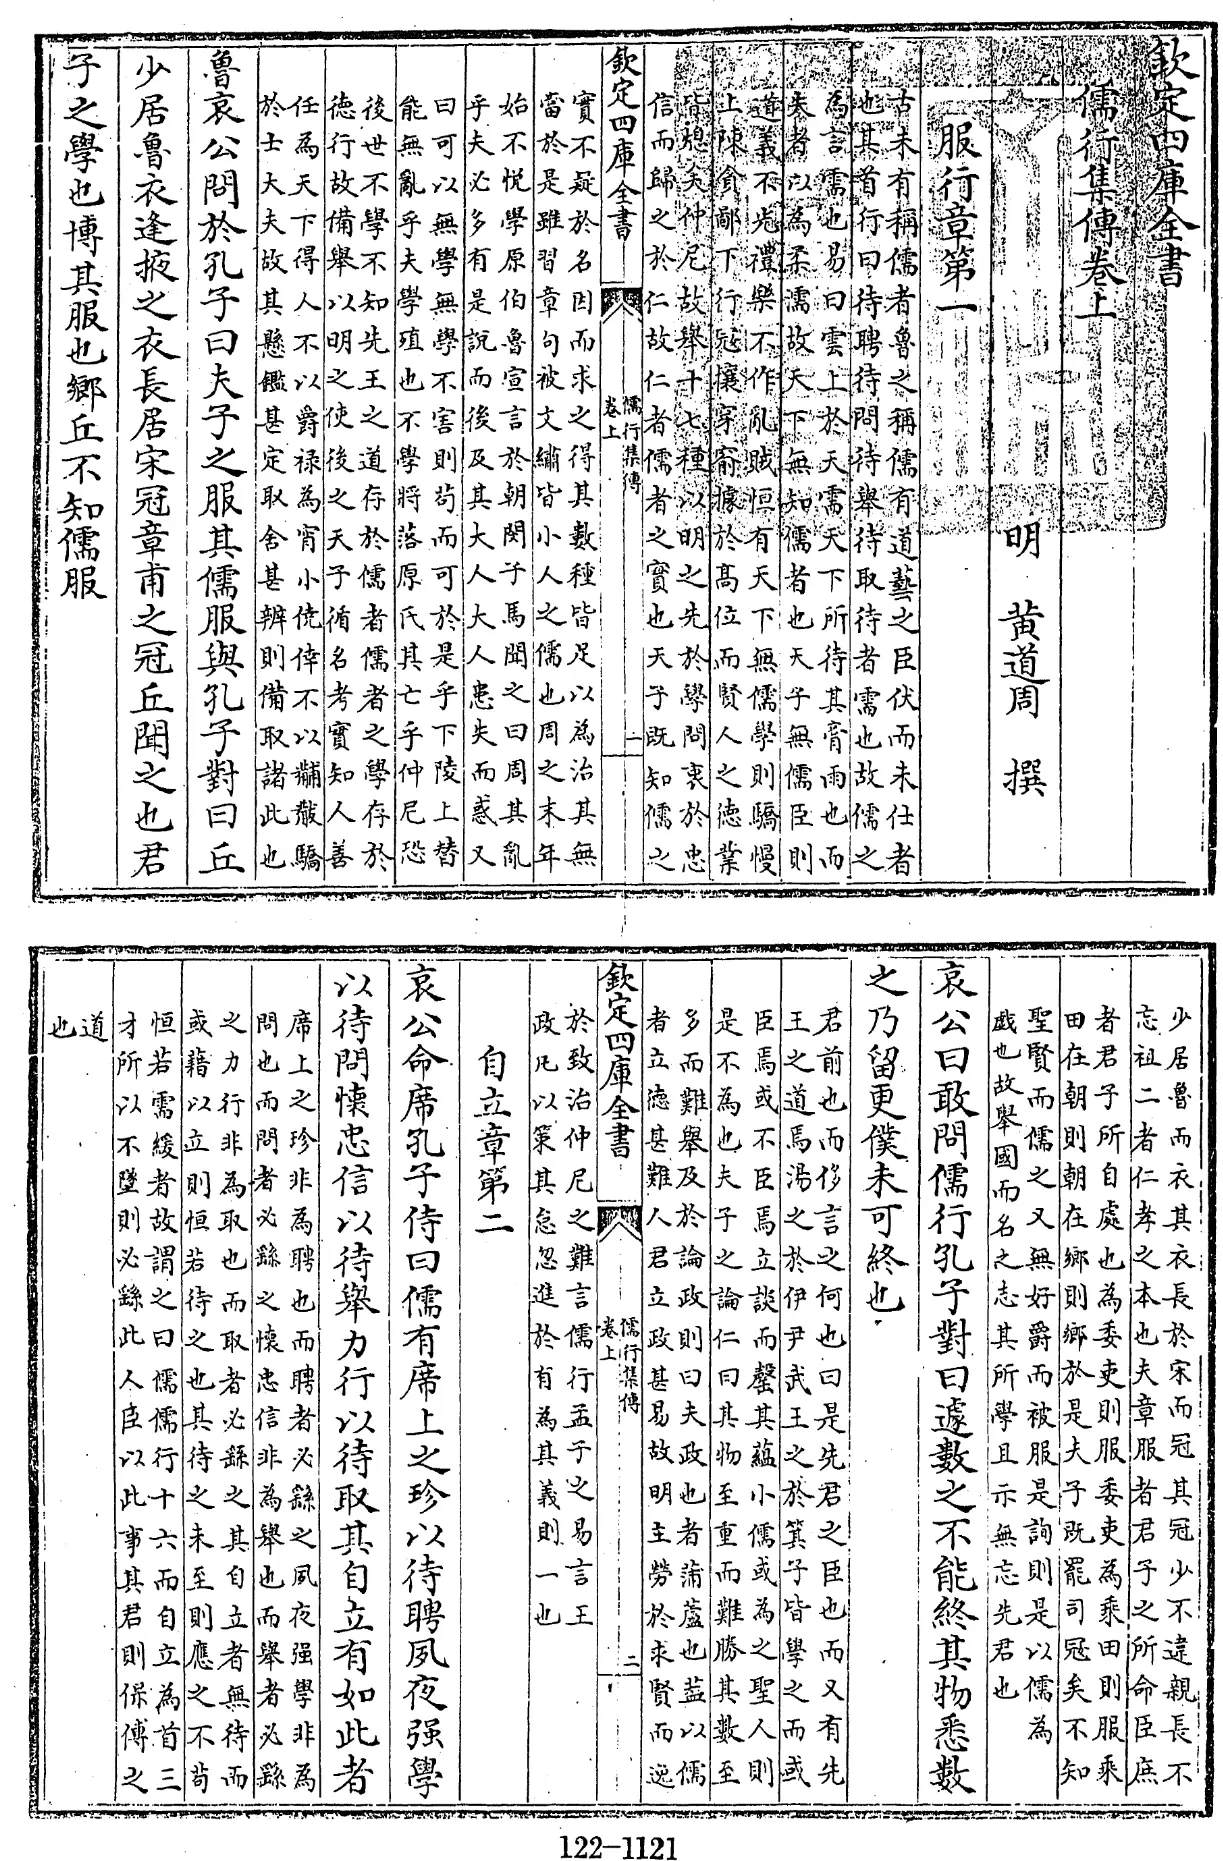 欽定四庫全書
儒行集傳卷上
明 黃道周 撰
服行章第一
古未有稱儒者魯之稱儒有道藝之臣伏而未仕者
也其首行曰待聘待問待舉待取待者需也故儒之
為言需也易曰雲上於天需天下所待其膏雨也而
夫者以為柔濡故天下無知儒者也天子無儒臣則
道義不光禮樂不作亂賊恒有天下無儒學則驕慢
上陳貪鄙下行寇攘穿窬據於高位而賢人之德業
皆熄矣仲尼故舉十七種以明之先於學問衷於忠
信而歸之於仁故仁者儒者之實也天子既知儒之
欽定四庫全書
儒行集傳
卷上
一
實不疑於名因而求之得其數種皆足以為治其無
當於是雖習章句被文繡皆小人之儒也周之末年
始不悅學原伯魯宣言於朝閔子馬聞之曰周其亂
乎夫必多有是說而後及其大人大人患失而惑又
曰可以無學無學不害則苟而可於是乎下陵上替
能無亂乎夫學殖也不學將落原氏其亡乎仲尼恐
後世不學不知先王之道存於儒者儒者之學存於
德行故備舉以明之使後之天子循名考實知人善
任為天下得人不以爵祿為宵小僥倖不以黼黻驕
於士大夫故其懸鑑甚定取舍甚辨則備取諸此也
魯哀公問於孔子曰夫子之服其儒服與孔子對曰丘
少居魯衣逢掖之衣長居宋冠章甫之冠丘聞之也君
子之學也博其服也鄉丘不知儒服
少居魯而衣其衣長於宋而冠其冠少不違親長不
忘祖二者仁孝之本也夫章服者君子之所命臣庶
者君子所自處也為委吏則服委吏為乘田則服乘
田在朝則朝在鄉則鄉於是夫子既罷司冦矣不知
聖賢而儒之又無好爵而被服是詢則是以儒為
戯也故舉國而名之志其所學且示無忘先君也
哀公曰敢問儒行孔子對曰遽數之不能終其物悉數
之乃留更僕未可終也
君前也而侈言之何也曰是先君之臣也而又有先
王之道焉湯之於伊尹武王之於箕子皆學之而或
臣焉或不臣焉立談而罄其蘊小儒或為之聖人則
是不為也夫子之論仁曰其物至重而難勝其數至
多而難舉及於論政則曰夫政也者蒲蘆也葢以儒
者立德甚難人君立政甚易故明主勞於求賢而逸
欽定四庫全書
儒行集傳
卷上
二
於致治仲尼之難言儒行孟子之易言王
政凡以策其怠忽進於有為其義則一也
自立章第二
哀公命席孔子侍曰儒有席上之珍以待聘夙夜强學
以待問懷忠信以待舉力行以待取其自立有如此者
席上之珍非為聘也而聘者必繇之夙夜强學非為
問也而問者必繇之懷忠信非為舉也而舉者必繇
之力行非為取也而取者必繇之其自立者無待而
或藉以立則恒若待之也其待之未至則應之不苟
恒若需緩者故謂之曰儒儒行十六而自立為首三
才所以不墜則必繇此人臣以此事其君則保傅之
道也
122-1121